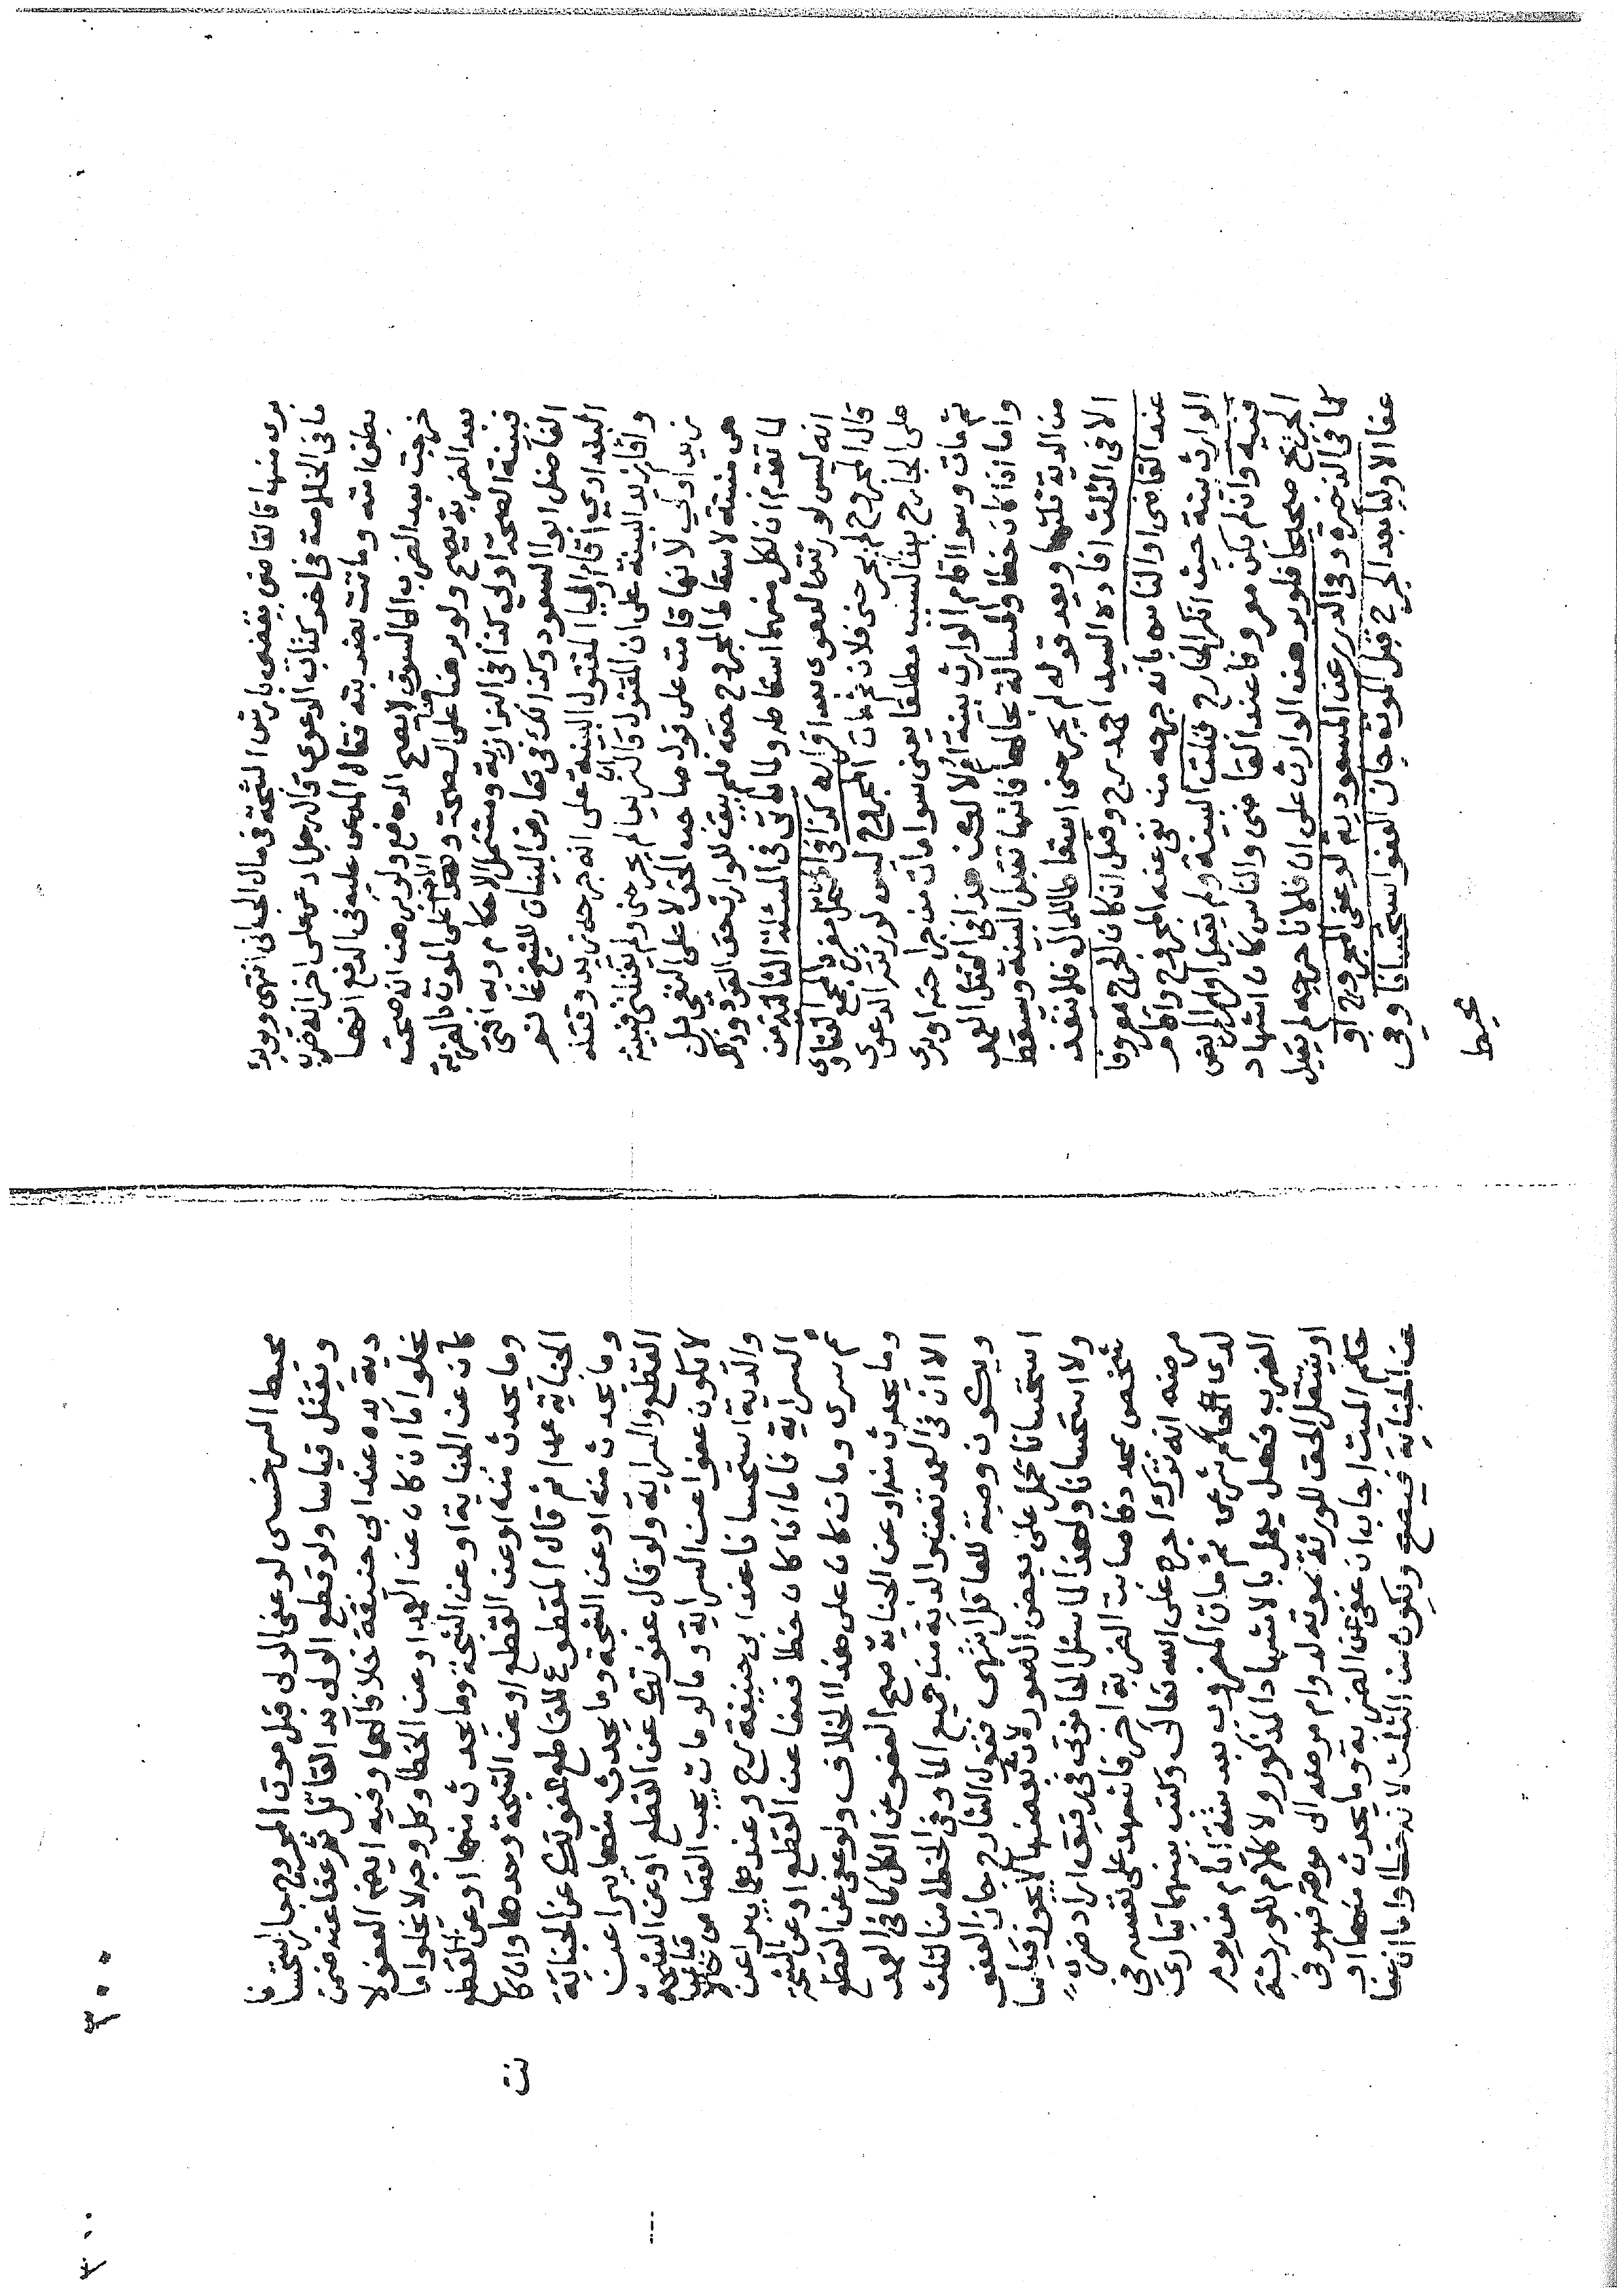 يرى منها فالقاضي يقضى بارش الشجة في مال الجاني انتهى ويويده
ما في الخلاصة في اخر كتاب الدعوى قال رجل ادعى على اخر انه ضرب
بطن امته وماتت بضربته فقال المدعى عليه في الدفع انها
خرجت بعد الضرب الى السوق لا يصح الدفع ولو برهن انه صحت
بعد الضربة يصح ولو برهنا على الصحة والاخر على الموت بالضربة
فبينة الصحة اولى كذا في البزازية ومشتمل الاحكام وبه افتى
الفاضل ابوا السعود وكذا ذكر في تعارض البينات للشيخ غانم
البغدادي اقام اوليا المقتول البينة على انه جرحه زيد وقتله
واقام زيد البينة على ان المقتول قال ان زيدا لم يجرحني ولم يقتلني فبينة
زيد اولي لانها قامت على قول صاحب الحق لا على النفي بل
هي مثبتة لاسقاط المجروح حقه فلم يبق للوارث حق القود
لما تقدم ان لكل منهما اسقاطه ولما ياتي في المسئلة الثالثة من
انه ليس لورثته الدعوى بعد اقراره كذا في
قال المجروح لم يجرحني فلان ثم مات المجروح ليس لورثته الدعوى
على الجارح بهذا السبب مطلقا يعني سوا مات من جراحته او برى
ثم مات وسوا اقام الوارث بينة ام لا لكن هذا في القتل العمد
واما اذا كان خطا والمسالة بحالها فانها تقبل البينة وسقط
من الدية ثلثها ويعد قوله لم يجرحني اسقاطا للمال فلا ينفذ
الا في الثلث افاده السيد احمد رح وقيل ان كان الجرح معروفا
عند القاضي او الناس بانه جرحه من نفى عنه المجروح واقام
الوارث بينة حيث انكر الجارح قبلت البينة ولم يقبل اقرار المريض
فيه وان لم يكن معروفا عند القاضي والناس كان اشهاد
الجريح صحيحا فلو برهن الوارث على ان فلانا جرحه لم يقبل
كما في الذخيرة وفي الدرر عن المسعودية لو عفى المجروح او
عفا الاوليا بعد الجرح قبل الموت جاز العفو استحسانا وفي
محيط
محيط السرخسى لو عفى الولى قبل موت المجروح جاز استحسانا
ويقتل قياسا ولو قطع الولى يد القاتل ثم عفا عنه ضمن
دية يده عند ابي حنيفة خلافا لهما وفيه ايضا العفو لا
يخلوا ما ان كان عن العمد او عن الخطا وكل وجه لا يخلوا اما
كان عن الجناية او عن الشجة وما يحدث منها او عن القطع
وما يحدث منه او عن القطع او عن الشجة وحدها وان كا
نت
الجناية عمدا ثم قال المقطوع للقاطع عفوتك عن الجناية
وما يحدث منه او عن الشجة وما يحدث منها يبرا عن
القطع والسراية ولو قال عفوتك عن القطع او عن الشجة
لا يكون عفوا عن السراية وما لو مات يجب القصاص قياسا
والدية استحسانا عند ابي حنيفة رح وعندهما يبرا عن
السراية فاما اذا كان خطا فعفا عن القطع او عن الشجة
ثم سرى ومات كان على هذا الخلاف ولو عفى عن القطع
وما يحدث منه او عن الجناية صح العفو عن الكل كما في العمد
الا ان في العمد تعتبر الدية من جميع المال وفي الخطا من الثلث
ويكون وصية للعاقلة انتهى فقول الشارح جاز العفو
استحسانا يحمل على بعض الصور لان بعضها لا يجوز قياسا
ولا استحسانا ولهذا لما سئل الحانوتي في رقيق اراد ضرب
شخص بمحدد فاصابت الضربة اخر فاشهد على نفسه في
مرضه انه ترك اجره على الله تعالى وكتب بينهما تباري
لدى حاكم شرعي ثم مات المضروب بعد ستة ايام من يوم
الضرب فهل يعمل بالاشهاد المذكور ولا كلام للورثة
او ينتقل الحق للورثة بموته لدوام مرضه الى موته فهو في
حكم الميت اجاب ان عفى عن الضربة وما يحدث منها او
عن الجناية فيصح ويكون من الثلث لانه خطا واما ان عفا